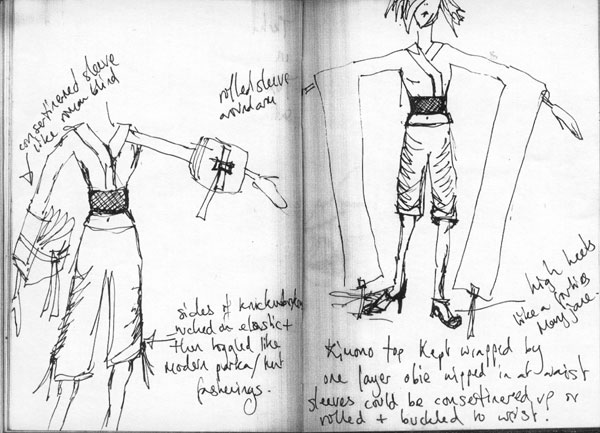 consertinered sleeve
like roman blind
rolled sleeve
around arm
sides of knickerbockers
ruched on elastic +
then toggled like
modern parka/tent
fastenings.
high heels
like a forties
Mary jane.
* Kimono top kept wrapped by
one layer obie nipped in at waist
sleeves could be consertinered up or
rolled + buckled to wrist!